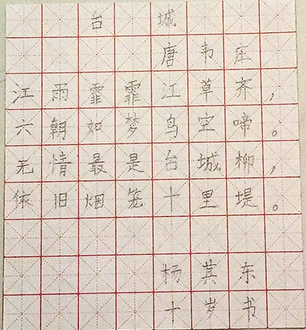 台城
唐 韦庄
江雨霏霏江草齐，
六朝如梦鸟空啼。
无情最是台城柳，
依旧烟笼十里堤。
杨其东
十岁书